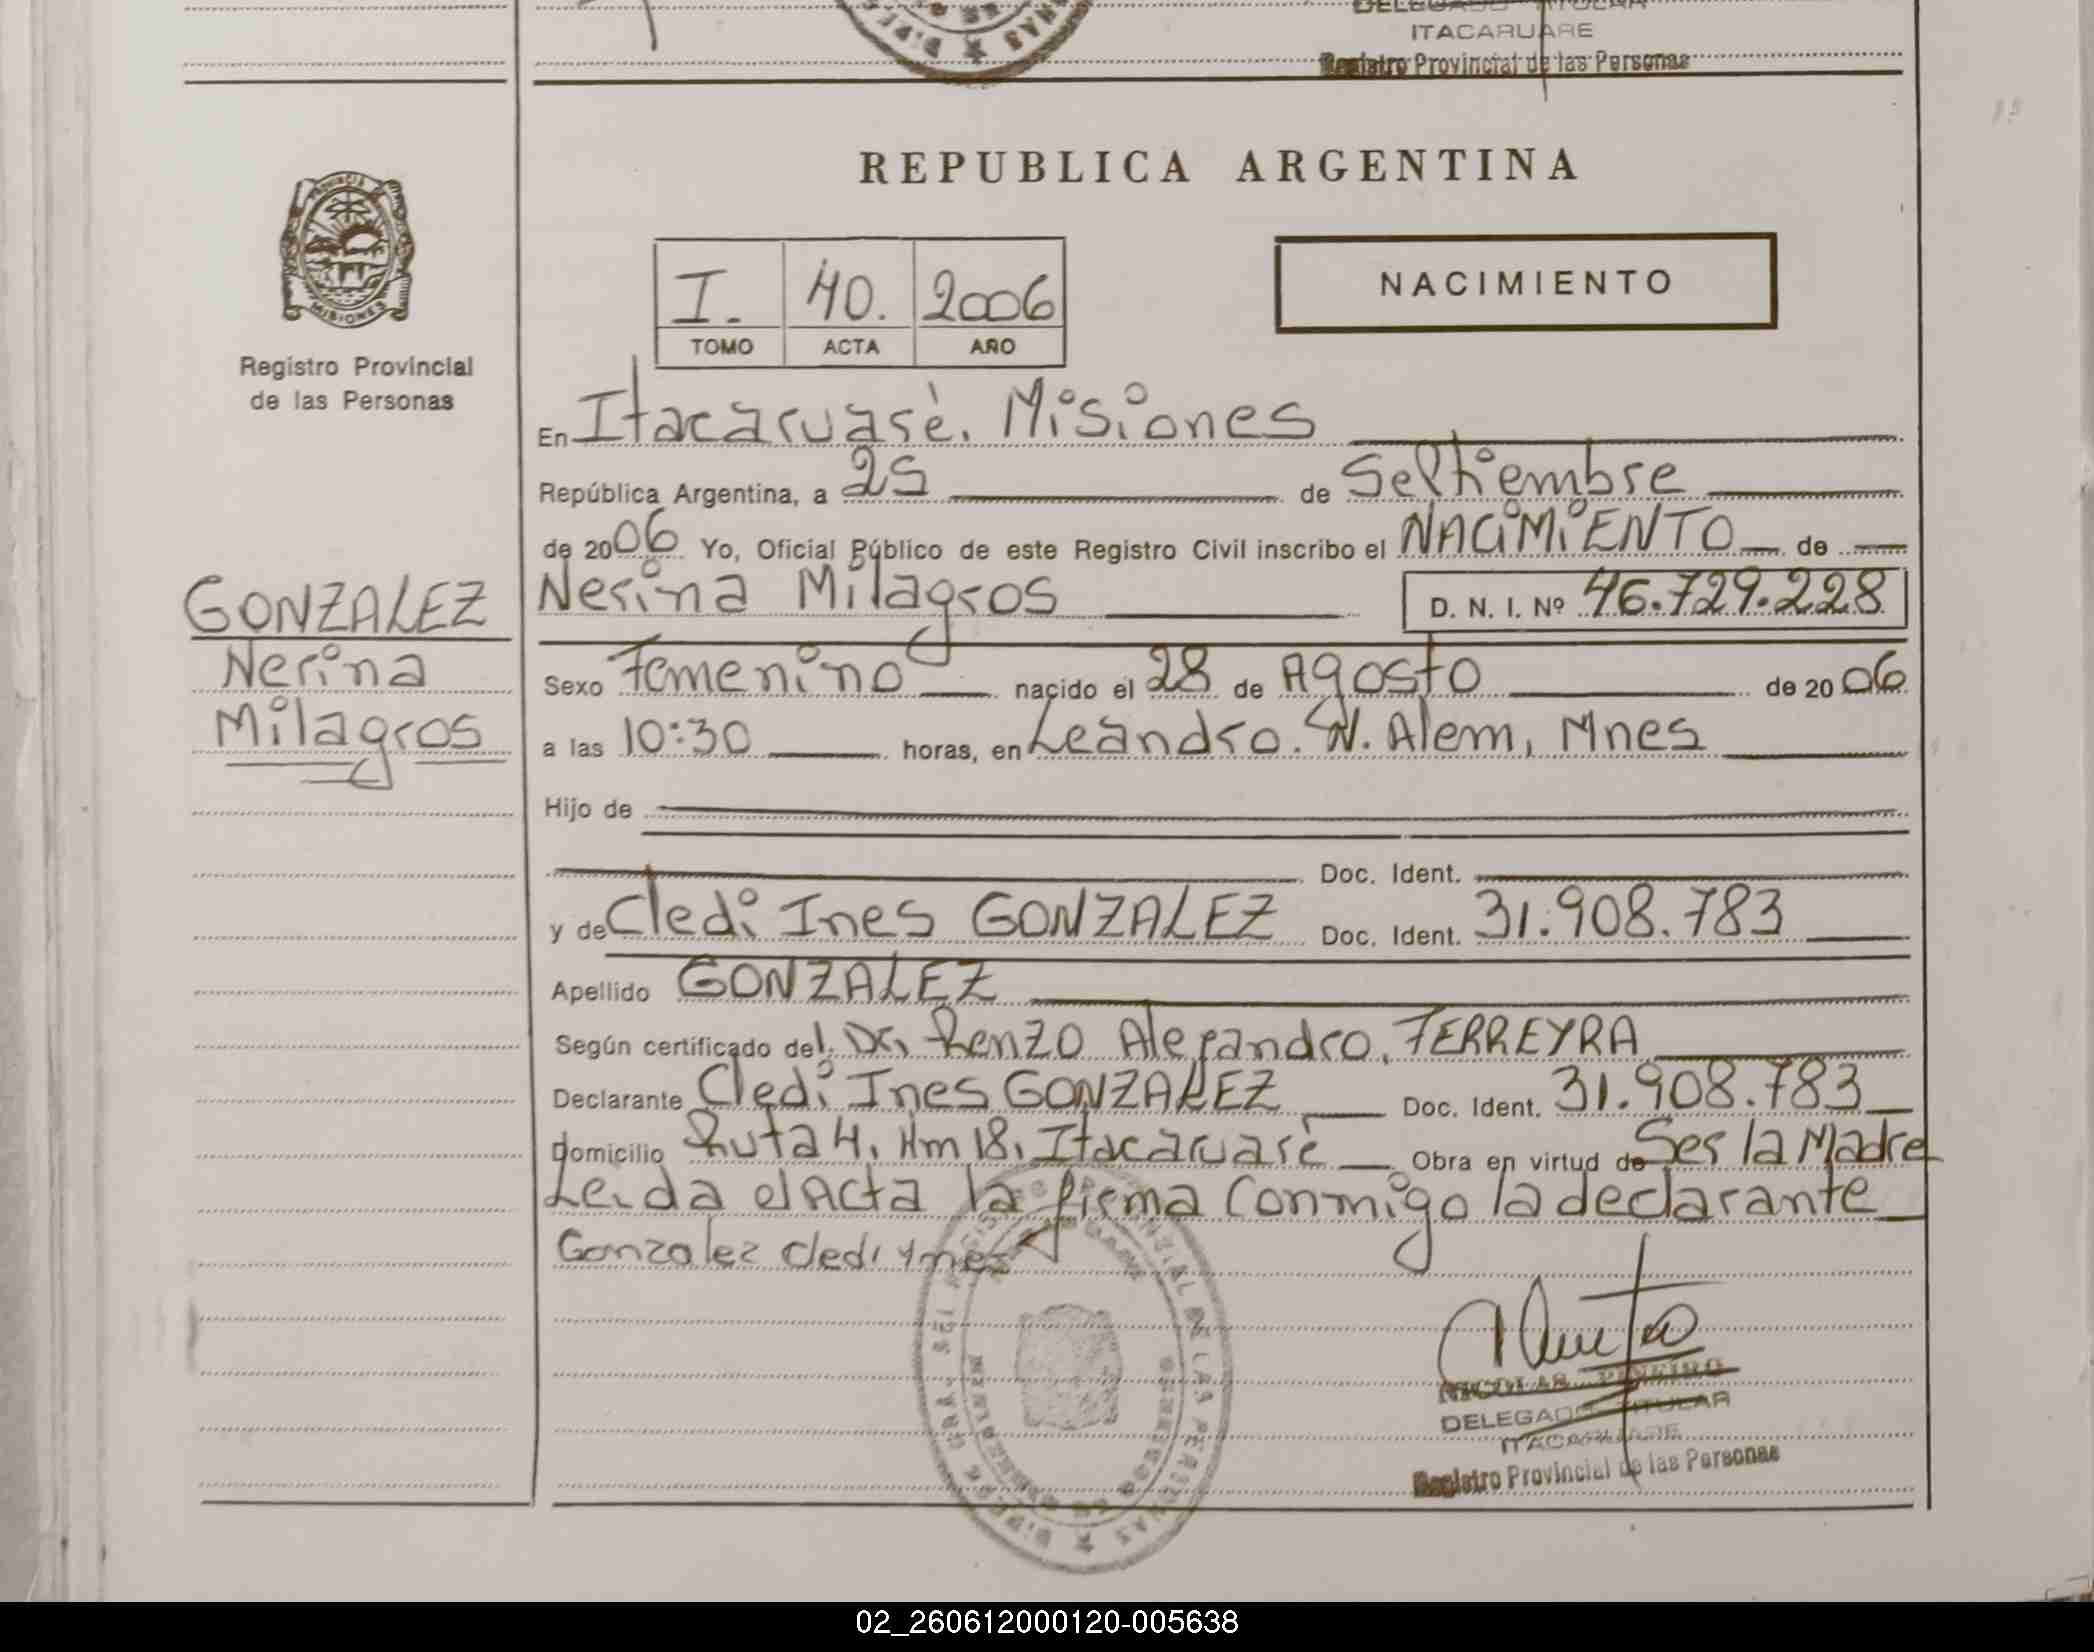 DELEGADO TITULAR
ITACARUARE
Registro Provincial de las Personas
REPUBLICA ARGENTINA
PROVINCIA DE
MISIONES
Registro Provincial
de las Personas
I. 40. 2006
TOMO ACTA AÑO
NACIMIENTO
En Itacaruaré. Misiones
República Argentina, a 25 de Septiembre
de 2006 Yo, Oficial Público de este Registro Civil inscribo el NACIMIENTO de
GONZALEZ
Nerina
Milagros
Nerina Milagros D. N. I. Nº 46.729.228
Sexo Femenino nacido el 28 de Agosto de 2006
a las 10:30 horas, en Leandro. N. Alem, Mnes
Hijo de
Doc. Ident.
y de Cledi Ines GONZALEZ Doc. Ident. 31.908.783
Apellido GONZALEZ
Según certificado del Dr. Renzo Alejandro, FERREYRA
Declarante Cledi Ines GONZALEZ Doc. Ident. 31.908.783
Domicilio Ruta 4, Km 18, Itacaruaré Obra en virtud de Ser la Madre
Leida el Acta la firma Conmigo la declarante
Gonzalez cledi ynes
NICOLAS PIÑEIRO
DELEGADO TITULAR
ITACARUARE
Registro Provincial de las Personas
02_260612000120-005638